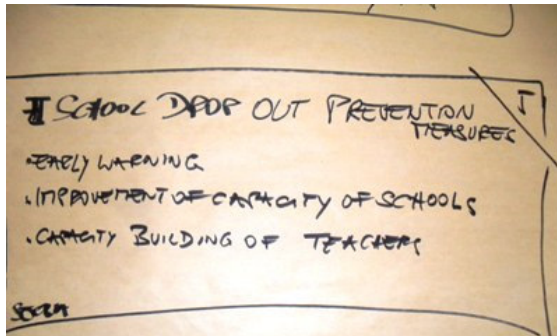 I SCHOOL DROP OUT PREVENTION
MEASURES
I
• EARLY WARNING
• IMPROVEMENT OF CAPACITY OF SCHOOLS
• CAPACITY BUILDING OF TEACHERS